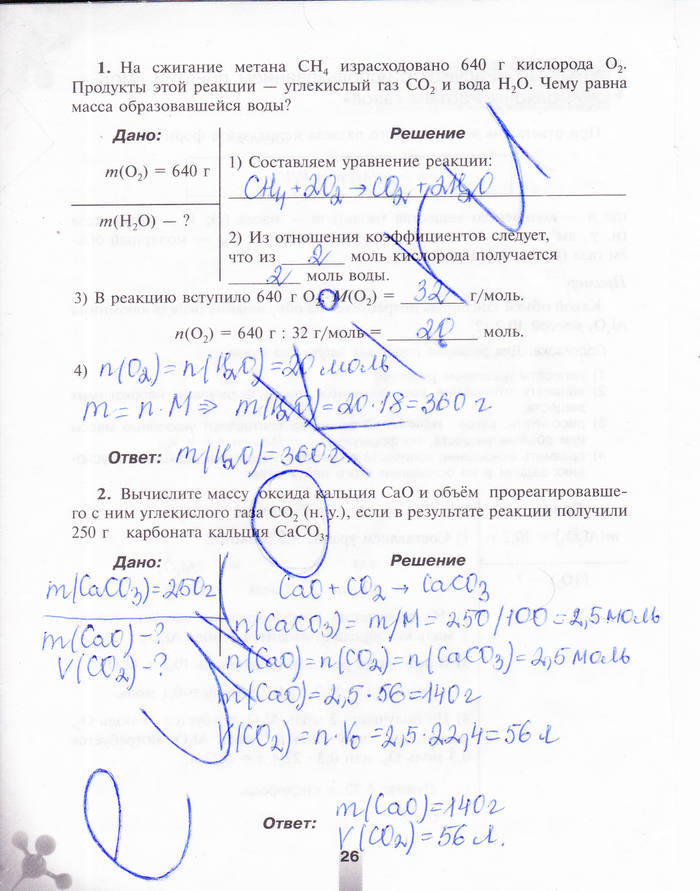 1. На сжигание метана CH₄ израсходовано 640 г кислорода O₂.
Продукты этой реакции — углекислый газ CO₂ и вода H₂O. Чему равна
масса образовавшейся воды?
Дано:
m(O₂) = 640 г
m(H₂O) — ?
Решение
1) Составляем уравнение реакции:
CH₄ + 2O₂ → CO₂ + 2H₂O
2) Из отношения коэффициентов следует,
что из 2 моль кислорода получается
2 моль воды.
3) В реакцию вступило 640 г O₂; M(O₂) = 32 г/моль.
n(O₂) = 640 г : 32 г/моль = 20 моль.
4) n(O₂) = n(H₂O) = 20 моль
m = n · M ⇒ m(H₂O) = 20 · 18 = 360 г
Ответ: m(H₂O) = 360 г.
2. Вычислите массу оксида кальция CaO и объём прореагировавше-
го с ним углекислого газа CO₂ (н. у.), если в результате реакции получили
250 г карбоната кальция CaCO₃.
Дано:
m(CaCO₃) = 250г
m(CaO) - ?
V(CO₂) - ?
Решение
CaO + CO₂ → CaCO₃
n(CaCO₃) = m/M = 250/100 = 2,5 моль
n(CaO) = n(CO₂) = n(CaCO₃) = 2,5 моль
m(CaO) = 2,5 · 56 = 140 г
V(CO₂) = n · V₀ = 2,5 · 22,4 = 56 л
Ответ: m(CaO) = 140 г
V(CO₂) = 56 л.
26